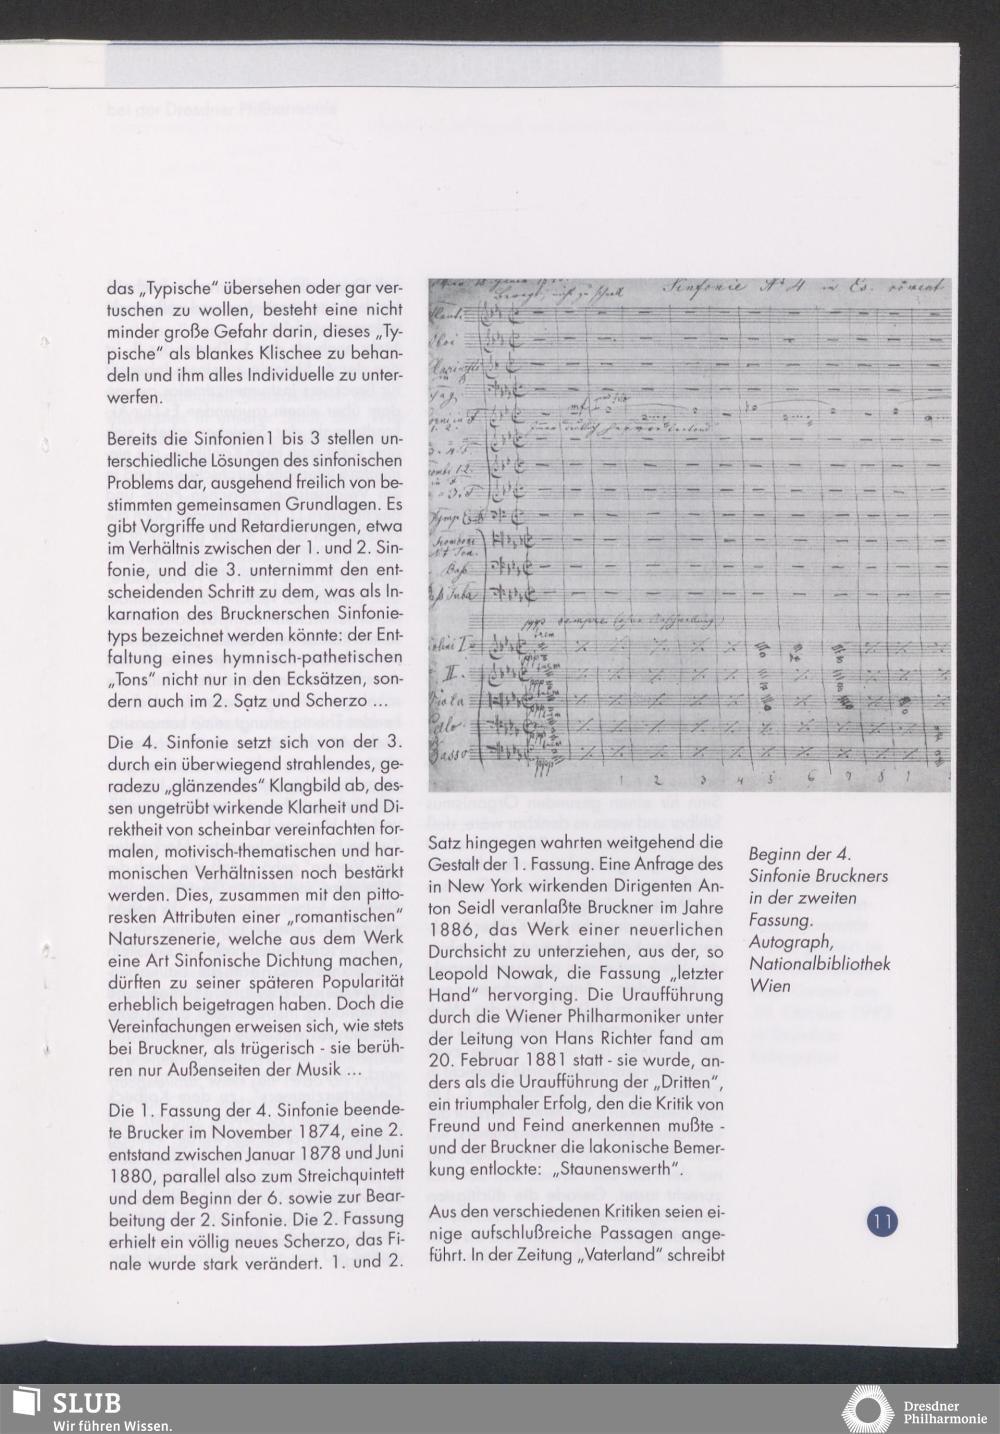 das „Typische“ übersehen oder gar ver-
tuschen zu wollen, besteht eine nicht
minder große Gefahr darin, dieses „Ty-
pische“ als blankes Klischee zu behan-
deln und ihm alles Individuelle zu unter-
werfen.
Bereits die Sinfonien1 bis 3 stellen un-
terschiedliche Lösungen des sinfonischen
Problems dar, ausgehend freilich von be-
stimmten gemeinsamen Grundlagen. Es
gibt Vorgriffe und Retardierungen, etwa
im Verhältnis zwischen der 1. und 2. Sin-
fonie, und die 3. unternimmt den ent-
scheidenden Schritt zu dem, was als In-
karnation des Brucknerschen Sinfonie-
typs bezeichnet werden könnte: der Ent-
faltung eines hymnisch-pathetischen
„Tons“ nicht nur in den Ecksätzen, son-
dern auch im 2. Satz und Scherzo ...
Die 4. Sinfonie setzt sich von der 3.
durch ein überwiegend strahlendes, ge-
radezu „glänzendes“ Klangbild ab, des-
sen ungetrübt wirkende Klarheit und Di-
rektheit von scheinbar vereinfachten for-
malen, motivisch-thematischen und har-
monischen Verhältnissen noch bestärkt
werden. Dies, zusammen mit den pitto-
resken Attributen einer „romantischen“
Naturszenerie, welche aus dem Werk
eine Art Sinfonische Dichtung machen,
dürften zu seiner späteren Popularität
erheblich beigetragen haben. Doch die
Vereinfachungen erweisen sich, wie stets
bei Bruckner, als trügerisch - sie berüh-
ren nur Außenseiten der Musik ...
Die 1. Fassung der 4. Sinfonie beende-
te Brucker im November 1874, eine 2.
entstand zwischen Januar 1878 und Juni
1880, parallel also zum Streichquintett
und dem Beginn der 6. sowie zur Bear-
beitung der 2. Sinfonie. Die 2. Fassung
erhielt ein völlig neues Scherzo, das Fi-
nale wurde stark verändert. 1. und 2.
Sinfonie No 4 in Es.
II.
Viola
Basso
1 2 3 4 5 6 7 8 1
Satz hingegen wahrten weitgehend die
Gestalt der 1. Fassung. Eine Anfrage des
in New York wirkenden Dirigenten An-
ton Seidl veranlaßte Bruckner im Jahre
1886, das Werk einer neuerlichen
Durchsicht zu unterziehen, aus der, so
Leopold Nowak, die Fassung „letzter
Hand“ hervorging. Die Uraufführung
durch die Wiener Philharmoniker unter
der Leitung von Hans Richter fand am
20. Februar 1881 statt - sie wurde, an-
ders als die Uraufführung der „Dritten“,
ein triumphaler Erfolg, den die Kritik von
Freund und Feind anerkennen mußte -
und der Bruckner die lakonische Bemer-
kung entlockte: „Staunenswerth“.
Aus den verschiedenen Kritiken seien ei-
nige aufschlußreiche Passagen ange-
führt. In der Zeitung „Vaterland“ schreibt
Beginn der 4.
Sinfonie Bruckners
in der zweiten
Fassung.
Autograph,
Nationalbibliothek
Wien
11
SLUB
Wir führen Wissen.
Dresdner
Philharmonie